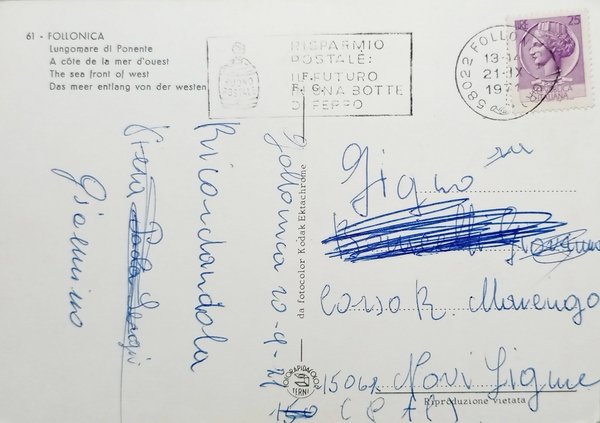 61 - FOLLONICA
Lungomare di Ponente
A côte de la mer d'ouest
The sea front of west
Das meer entlang von der westen
RISPARMIO
POSTALE:
IL FUTURO
IN UNA BOTTE
DI FERRO
BUONO
POSTALE
58022 FOLLONICA
13-14
21-IX
1971
LIRE 25
REPUBBLICA
ITALIANA
Follonica 20-9-71
Ricordandola
Giannino
da fotocolor Kodak Ektachrome
FOTORAPIDACOLOR
TERNI
Corso R. Marengo
15062 Novi Ligure
Riproduzione vietata